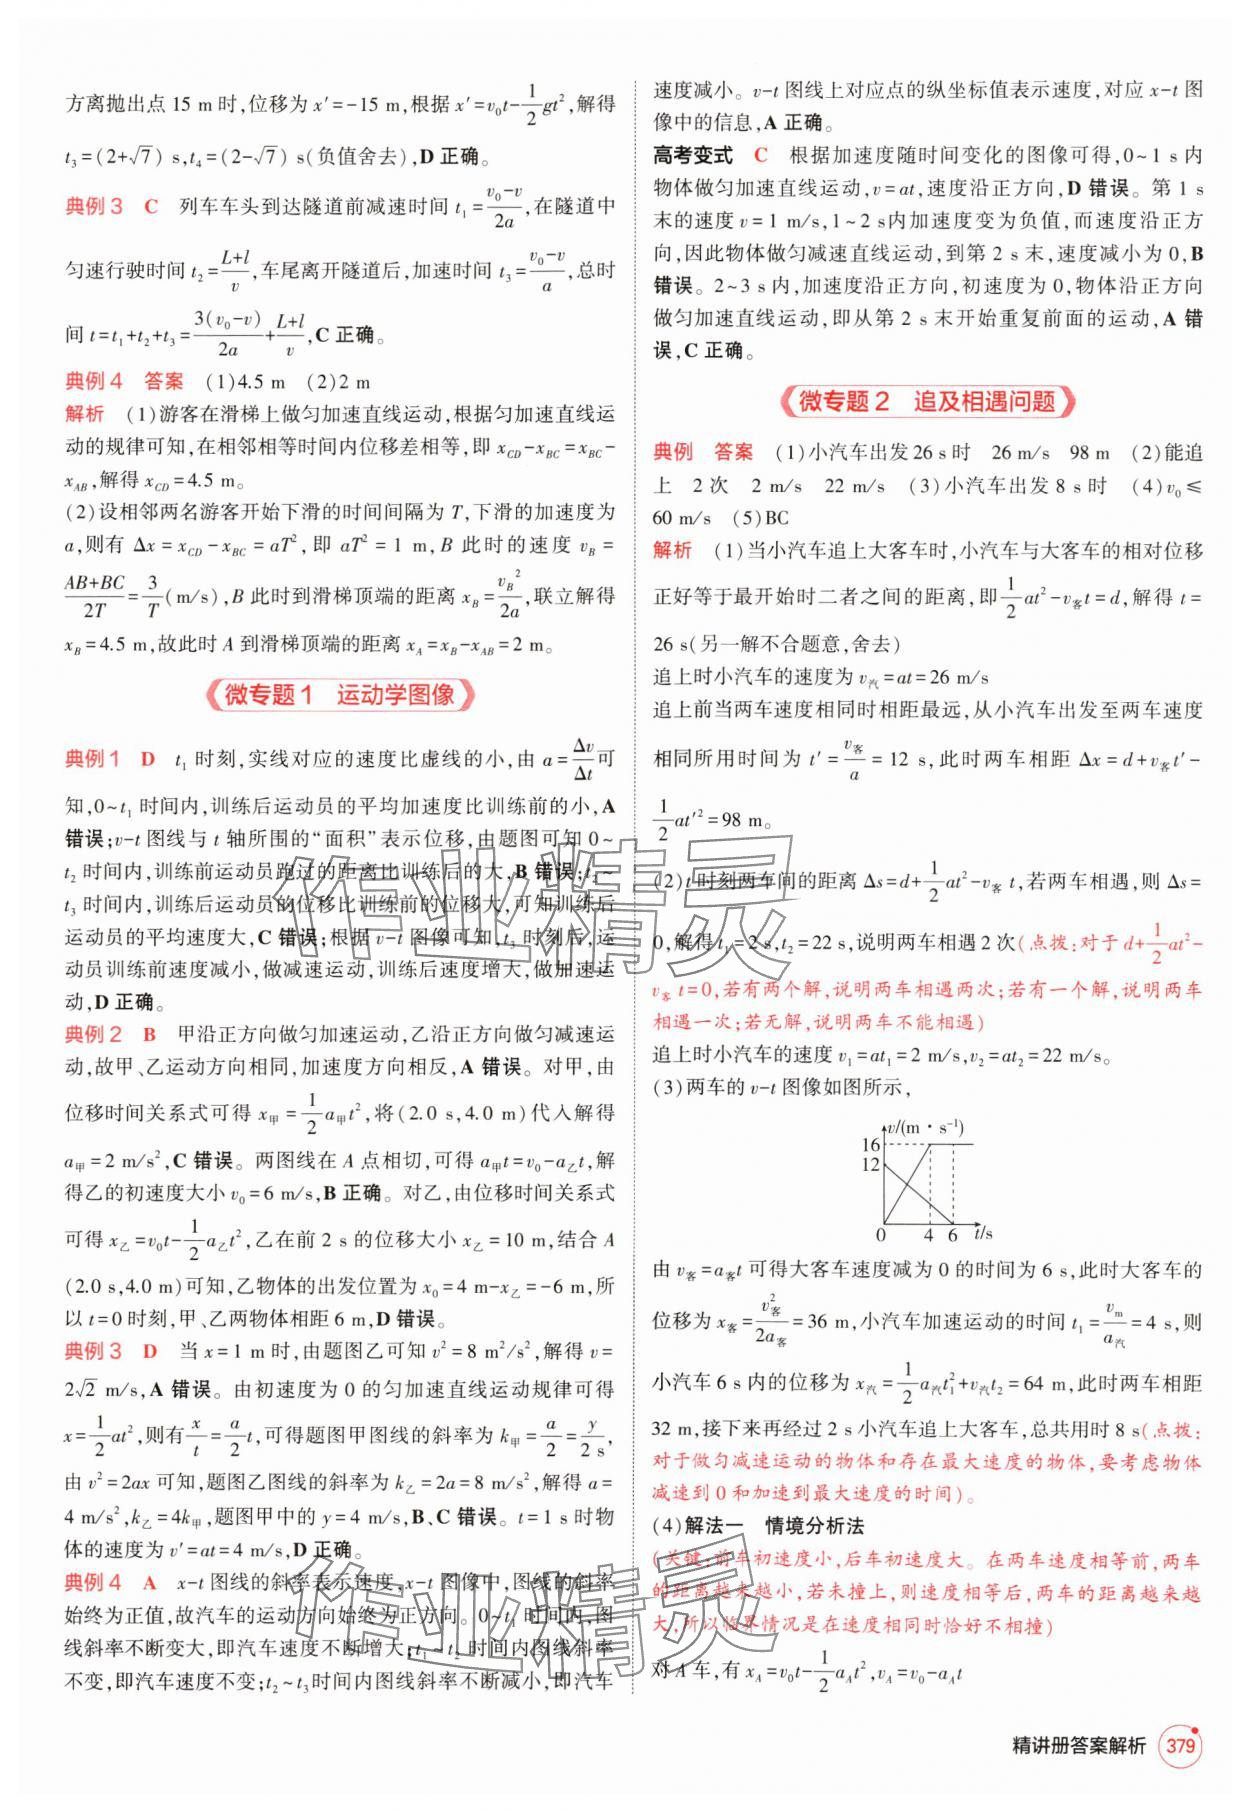 方离抛出点 15 m 时,位移为 x′=-15 m,根据 x′=v₀t-\frac{1}{2}gt²,解得
t₃=(2+√7) s,t₄=(2-√7) s(负值舍去),D 正确。
典例 3 C 列车车头到达隧道前减速时间 t₁=\frac{v₀-v}{2a},在隧道中
匀速行驶时间 t₂=\frac{L+l}{v},车尾离开隧道后,加速时间 t₃=\frac{v₀-v}{a},总时
间 t=t₁+t₂+t₃=\frac{3(v₀-v)}{2a}+\frac{L+l}{v},C 正确。
典例 4 答案 (1)4.5 m (2)2 m
解析 (1)游客在滑梯上做匀加速直线运动,根据匀加速直线运
动的规律可知,在相邻相等时间内位移差相等,即 x_{CD}-x_{BC}=x_{BC}-
x_{AB},解得 x_{CD}=4.5 m。
(2)设相邻两名游客开始下滑的时间间隔为 T,下滑的加速度为
a,则有 Δx=x_{CD}-x_{BC}=aT²,即 aT²=1 m,B 此时的速度 v_B=
\frac{AB+BC}{2T}=\frac{3}{T}(m/s),B 此时到滑梯顶端的距离 x_B=\frac{v_B²}{2a},联立解得
x_B=4.5 m,故此时 A 到滑梯顶端的距离 x_A=x_B-x_{AB}=2 m。
微专题 1 运动学图像
典例 1 D t₁ 时刻,实线对应的速度比虚线的小,由 a=\frac{Δv}{Δt}可
知,0~t₁ 时间内,训练后运动员的平均加速度比训练前的小,A
错误;v-t 图线与 t 轴所围的“面积”表示位移,由题图可知 0~
t₂ 时间内,训练前运动员跑过的距离比训练后的大,B 错误;t₂~
t₃ 时间内,训练后运动员的位移比训练前的位移大,可知训练后
运动员的平均速度大,C 错误;根据 v-t 图像可知,t₃ 时刻后,运
动员训练前速度减小,做减速运动,训练后速度增大,做加速运
动,D 正确。
典例 2 B 甲沿正方向做匀加速运动,乙沿正方向做匀减速运
动,故甲、乙运动方向相同,加速度方向相反,A 错误。对甲,由
位移时间关系式可得 x甲=\frac{1}{2}a甲t²,将(2.0 s,4.0 m)代入解得
a甲=2 m/s²,C 错误。两图线在 A 点相切,可得 a甲t=v₀-a乙t,解
得乙的初速度大小 v₀=6 m/s,B 正确。对乙,由位移时间关系式
可得 x乙=v₀t-\frac{1}{2}a乙t²,乙在前 2 s 的位移大小 x乙=10 m,结合 A
(2.0 s,4.0 m)可知,乙物体的出发位置为 x₀=4 m-x乙=-6 m,所
以 t=0 时刻,甲、乙两物体相距 6 m,D 错误。
典例 3 D 当 x=1 m 时,由题图乙可知 v²=8 m²/s²,解得 v=
2√2 m/s,A 错误。由初速度为 0 的匀加速直线运动规律可得
x=\frac{1}{2}at²,则有\frac{x}{t}=\frac{a}{2}t,可得题图甲图线的斜率为 k甲=\frac{a}{2}=\frac{y}{2 s},
由 v²=2ax 可知,题图乙图线的斜率为 k乙=2a=8 m/s²,解得 a=
4 m/s²,k乙=4k甲,题图甲中的 y=4 m/s,B、C 错误。t=1 s 时物
体的速度为 v′=at=4 m/s,D 正确。
典例 4 A x-t 图线的斜率表示速度,x-t 图像中,图线的斜率
始终为正值,故汽车的运动方向始终为正方向。0~t₁ 时间内,图
线斜率不断变大,即汽车速度不断增大;t₁~t₂ 时间内图线斜率
不变,即汽车速度不变;t₂~t₃时间内图线斜率不断减小,即汽车
速度减小。v-t 图线上对应点的纵坐标值表示速度,对应 x-t 图
像中的信息,A 正确。
高考变式 C 根据加速度随时间变化的图像可得,0~1 s 内
物体做匀加速直线运动,v=at,速度沿正方向,D 错误。第 1 s
末的速度 v=1 m/s,1~2 s内加速度变为负值,而速度沿正方
向,因此物体做匀减速直线运动,到第 2 s 末,速度减小为 0,B
错误。2~3 s 内,加速度沿正方向,初速度为 0,物体沿正方向
做匀加速直线运动,即从第 2 s 末开始重复前面的运动,A 错
误,C 正确。
微专题 2 追及相遇问题
典例 答案 (1)小汽车出发 26 s 时 26 m/s 98 m (2)能追
上 2 次 2 m/s 22 m/s (3)小汽车出发 8 s 时 (4)v₀≤
60 m/s (5)BC
解析 (1)当小汽车追上大客车时,小汽车与大客车的相对位移
正好等于最开始时二者之间的距离,即\frac{1}{2}at²-v客t=d,解得 t=
26 s(另一解不合题意,舍去)
追上时小汽车的速度为 v汽=at=26 m/s
追上前当两车速度相同时相距最远,从小汽车出发至两车速度
相同所用时间为 t′=\frac{v客}{a}=12 s,此时两车相距 Δx=d+v客t′-
\frac{1}{2}at′²=98 m。
(2)t 时刻两车间的距离 Δs=d+\frac{1}{2}at²-v客 t,若两车相遇,则 Δs=
0,解得t₁=2 s,t₂=22 s,说明两车相遇 2 次(点拨:对于 d+\frac{1}{2}at²-
v客 t=0,若有两个解,说明两车相遇两次;若有一个解,说明两车
相遇一次;若无解,说明两车不能相遇)
追上时小汽车的速度 v₁=at₁=2 m/s,v₂=at₂=22 m/s。
(3)两车的 v-t 图像如图所示,
v/(m·s⁻¹)
16
12
0 4 6 t/s
由 v客=a客t 可得大客车速度减为 0 的时间为 6 s,此时大客车的
位移为 x客=\frac{v客²}{2a客}=36 m,小汽车加速运动的时间 t₁=\frac{v_m}{a汽}=4 s,则
小汽车 6 s 内的位移为 x汽=\frac{1}{2}a汽t₁²+v汽t₂=64 m,此时两车相距
32 m,接下来再经过 2 s 小汽车追上大客车,总共用时 8 s(点拨:
对于做匀减速运动的物体和存在最大速度的物体,要考虑物体
减速到 0 和加速到最大速度的时间)。
(4)解法一 情境分析法
(关键:前车初速度小,后车初速度大。在两车速度相等前,两车
的距离越来越小,若未撞上,则速度相等后,两车的距离越来越
大,所以临界情况是在速度相同时恰好不相撞)
对 A 车,有 x_A=v₀t-\frac{1}{2}a_At²,v_A=v₀-a_At
作业精灵
作业精灵
精讲册答案解析 379